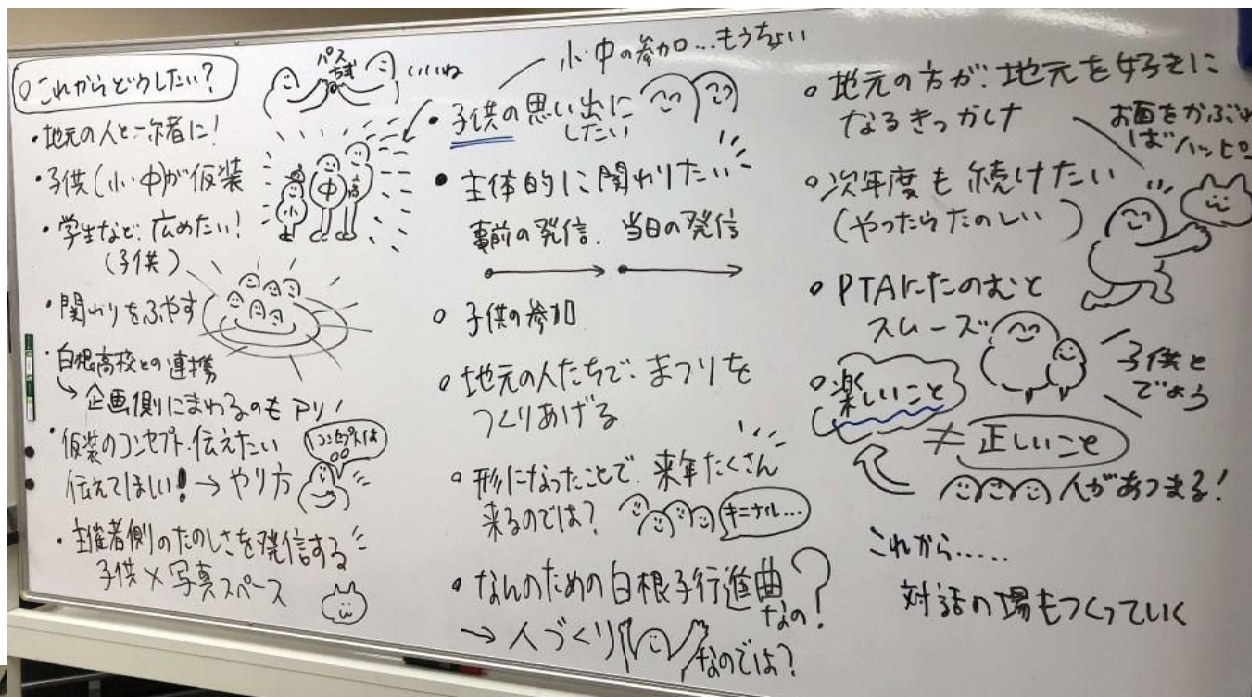 ○これからどうしたい?
・地元の人と一緒に!
・子供(小・中)が仮装
・学生など、広めたい!
(子供)
・関わりをふやす
・白根高校との連携
↳ 企画側にまわるのもアリ!
・仮装のコンセプト伝えたい
伝えてほしい! → やり方
コンセプトは
○○
・主催者側のたのしさを発信する
子供×写真スペース
パス
いいね
小 中 高
小・中の参加...もうちょい
・子供の思い出に
したい
・主体的に関わりたい
事前の発信、当日の発信
○ 子供の参加
○ 地元の人たちで、まつりを
つくりあげる
○ 形になったことで、来年たくさん
来るのでは?
キニナル...
○ なんのための白根子行進曲
なの?
→ 人づくり
なのでは?
○ 地元の方が、地元を好きに
なるきっかけ
お面をかぶれ
ばハッピー
○ 次年度も続けたい
(やったらたのしい)
○ PTAにたのむと
スムーズ
子供と
でよう
○ 楽しいこと
≠ 正しいこと
人があつまる!
これから......
対話の場もつくっていく